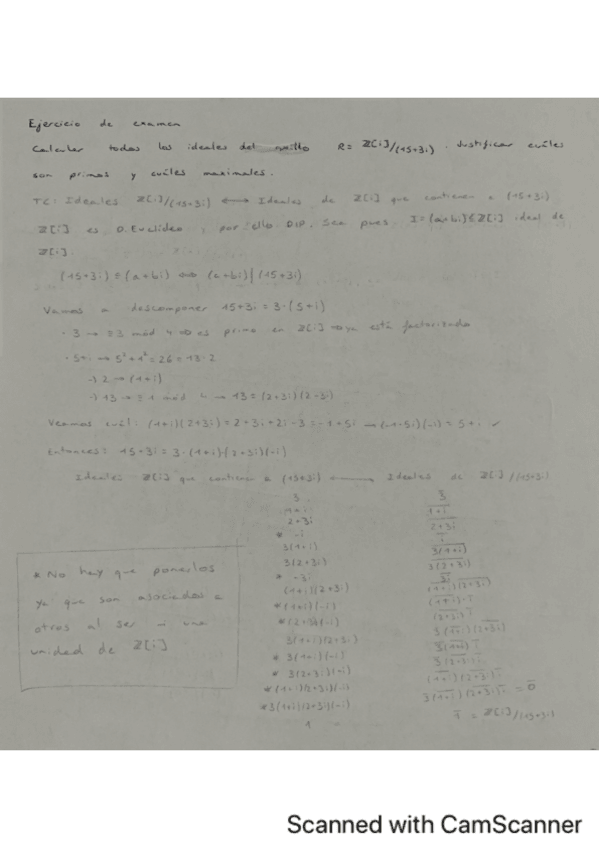 Ejercicio de examen
Calcular todos los ideales del anillo R = Z[i]/(15+3i). Justificar cuáles
son primos y cuáles maximales.
TC: Ideales Z[i]/(15+3i) ⟷ Ideales de Z[i] que contienen a (15+3i)
Z[i] es D. Euclídeo, por ello DIP. Sea pues I=(a+bi)≤Z[i] ideal de
Z[i].
(15+3i) ⊆ (a+bi) ⟺ (a+bi) | (15+3i)
Vamos a descomponer 15+3i = 3·(5+i)
· 3 → ≡3 mód 4 ⟹ es primo en Z[i] → ya está factorizado
· 5+i → 5²+1² = 26 = 13·2
→ 2 → (1+i)
→ 13 → ≡ 1 mód 4 → 13 = (2+3i)(2-3i)
Veamos cuál: (1+i)(2+3i) = 2+3i+2i-3 = -1+5i → (-1+5i)(-i) = 5+i ✓
Entonces: 15+3i = 3·(1+i)·(2+3i)(-i)
Ideales Z[i] que contienen a (15+3i) ⟷ Ideales de Z[i]/(15+3i)
3
1+i
2+3i
* -i
3(1+i)
3(2+3i)
* -3i
(1+i)(2+3i)
* (1+i)(-i)
* (2+3i)(-i)
3(1+i)(2+3i)
* 3(1+i)(-i)
* 3(2+3i)(-i)
* (1+i)(2+3i)(-i)
* 3(1+i)(2+3i)(-i)
1
3̅
1+i
2+3i
i
3(1+i)
3(2+3i)
3i
(1+i)(2+3i)
(1+i)·i
(2+3i)·i
3(1+i)(2+3i)
3(1+i) i
3(2+3i) i
(1+i)(2+3i) i
3(1+i)(2+3i) i = 0̅
1̅ = Z[i]/(15+3i)
* No hay que ponerlos
ya que son asociados a
otros al ser -i una
unidad de Z[i]
Scanned with CamScanner